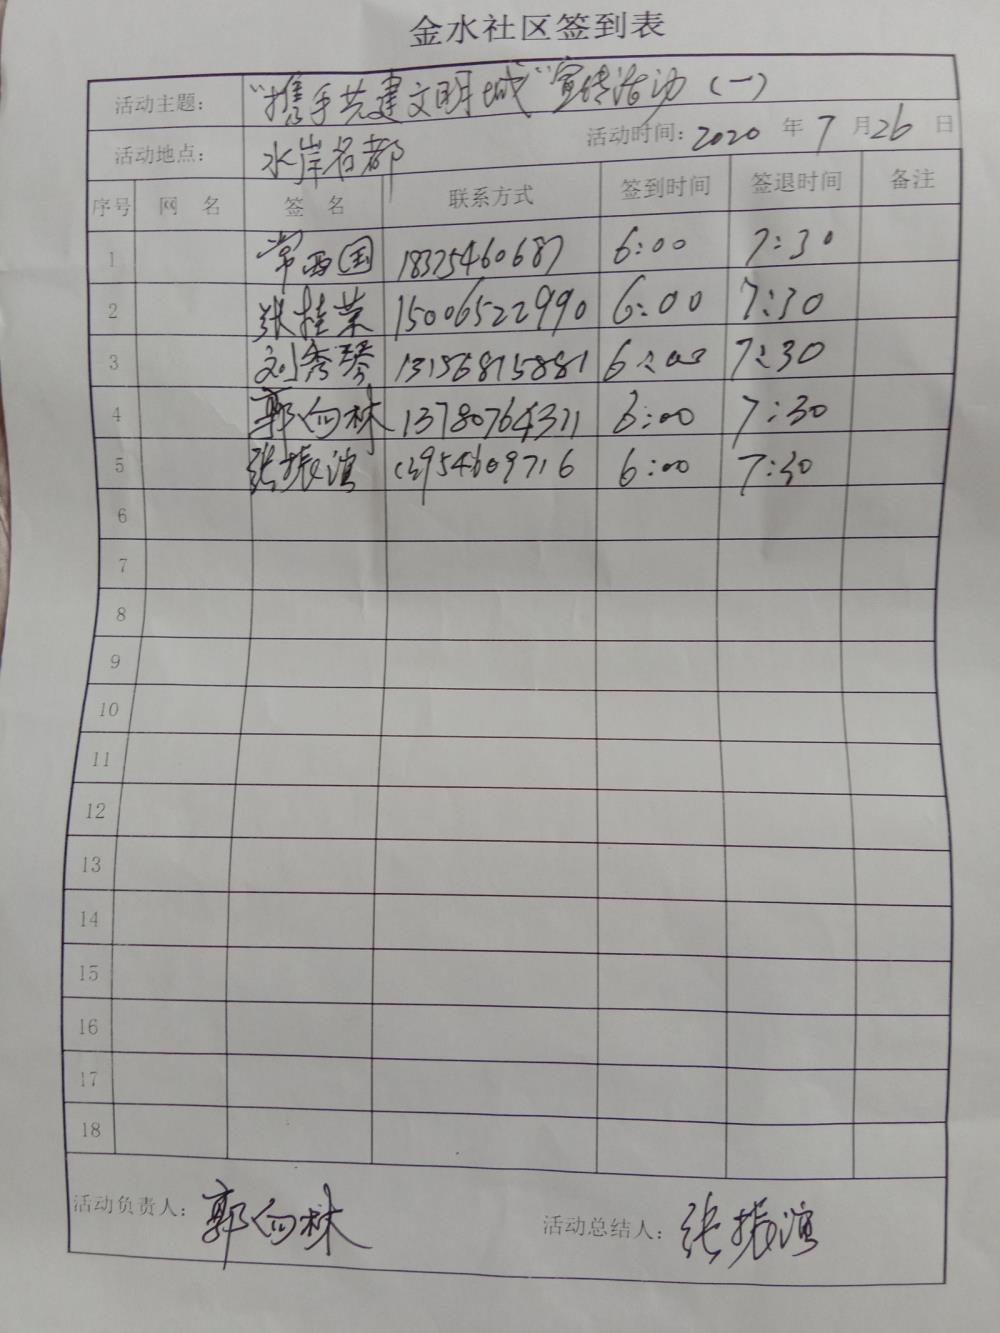 金水社区签到表
活动主题: "携手共建文明城"宣传活动(一)
活动地点: 水岸名都 活动时间: 2020 年 7 月 26 日
序号 网 名 签 名 联系方式 签到时间 签退时间 备注
1 常西国 18325460687 6:00 7:30
2 张桂荣 15006522990 6:00 7:30
3 刘秀琴 13156815881 6:00 7:30
4 郭向林 13780764311 6:00 7:30
5 张振滨 13954609716 6:00 7:30
6
7
8
9
10
11
12
13
14
15
16
17
18
活动负责人: 郭向林 活动总结人: 张振滨